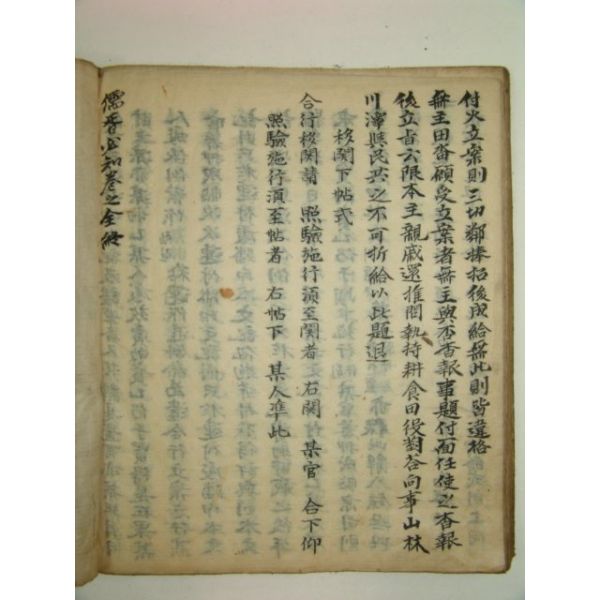 付火立案則三切鄰捧招後成給無此則皆違格
無主田畓願受立案者無主與否査報事題付面任使之査報
後立旨六限本主親戚還推間執持耕食田役對答向事山林
川澤與民共之不可折給以此題退
移關下帖式
合行移關請 照驗施行須至關者 右關 某官 合下仰
照驗施行須至帖者 右帖下 某人準此
儒胥必知卷之全終